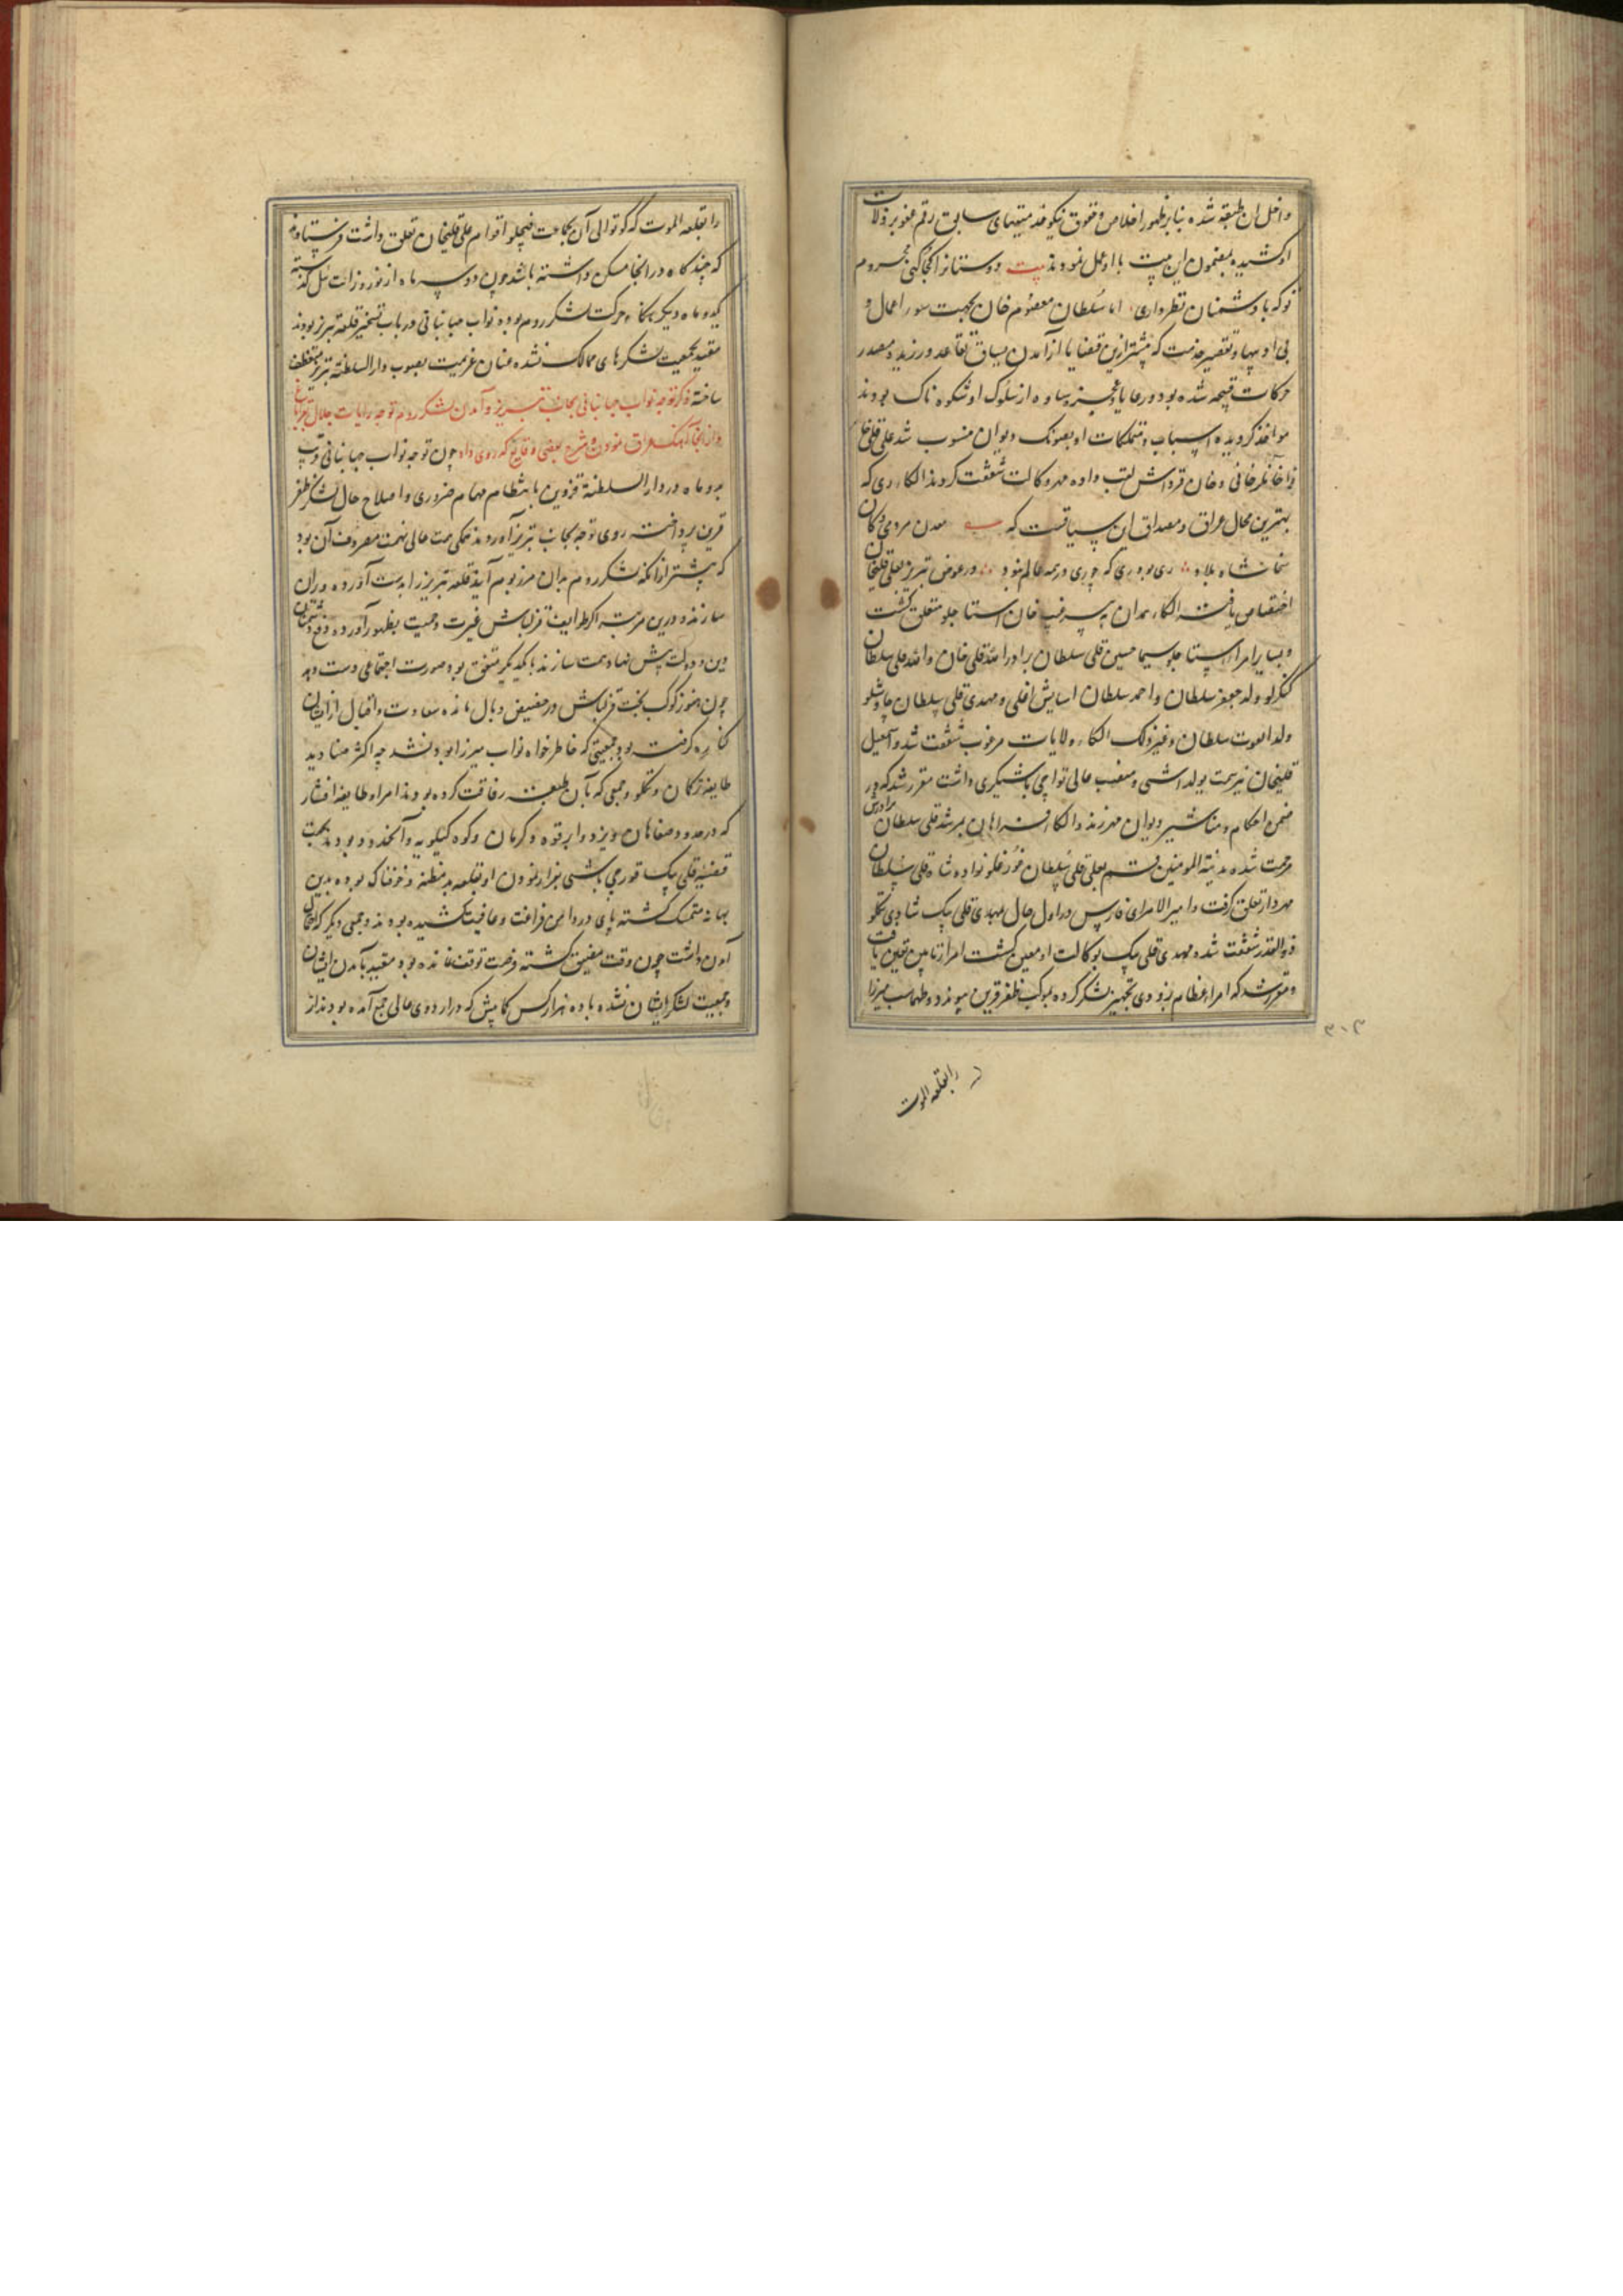 داخل ان طبقه شده بنابر ظهور اخلاص و حقوق نیکو خدمتیهای سابق رقم عفو بر زلات
او کشیده بمضمون این بیت با او عمل نمودند بیت دوستانرا کجا کنی محروم
تو که با دشمنان نظر داری اما سلطان معصوم خان بجهت سور اعمال و
بی او بیها و تقصیر خدمت که پیشتر ازین قضایا از آمدن یساق تقاعد ورزیده مصدر
حرکات قبیحه شده بود و رعایا و عجزه ساوه از سلوک او شکوه ناک بودند
مواخذ کردیده اسباب و متملکات او بصوبک دیوان منسوب شد علی قلی خا
نرا خانلر خانی و خان قرداش لقب داده مهر وکالت شفقت کردند الکاء ری که
بهترین محال عراق و مصداق این سیاقست که معدن مردمی و کان
سخا شاه بلاد ری بود ری که چو ری در همه عالم نبود در عوض تبریز بعلی قلیخان
اختصاص یافت الکاء همدان به پسر غیب خان استاجلو متعلق گشت
و بسایر امراء استاجلو سیما حسین قلی سلطان برادر الله قلی خان و الله قلی سلطان
کنکرلو ولد جعفر سلطان و احمد سلطان اسایش اغلی و مهدی قلی سلطان چاوشلو
ولد اغوت سلطان و غیر ذلک الکاء و ولایات مرغوب شفقت شد و اسمعیل
قلیخان نیز سمت یولداشی و منصب عالی تواچی باشیگری داشت مقرر شد که در
ضمن احکام و مناشیر دیوان مهر زند و الکاء فراهان بمرشد قلی سلطان برادرش
مرحمت شد و مدینة المومنین قم بعلی قلی سلطان نواده شاه قلی سلطان
مهردار تعلق گرفت و امیر الامرای فارس در اول حال مهدی قلی بیک شادی تکلو
ذوالقدر شفقت شده مهدی قلی بیک بوکالت او معین گشت امرا تابین تعین یافت
و مقرر شد که امراء عظام بزودی تجهیز لشکر کرده بموکب ظفر قرین پیوندد و طهماسب میرزا
۳۰۳
را بقلعه الموت
را بقلعه الموت که کوتوالی آن بجماعت فیچلو اقوام علی قلیخان تعلق داشت فرستادند
که چند کاه در انجا مسکن داشته باشد چون دو سه ماه از نوروز ئیل گذشته
یکدو ماه دیگر هنگام حرکت لشکر روم بود و نواب جهانبانی در باب تسخیر قلعه تبریز بودند
مقید بجمعیت لشکرهای ممالک نشده عنان عزیمت بصوب دارالسلطنه تبریز منعطف
ساخته ذکر توجه نواب جهانبانی بجانب تبریز و آمدن لشکر روم توجه رایات جلال بقراباغ
و از انجا آهنگ عراق نمودن و شرح بعضی وقایع که روی داد چون توجه نواب جهانبانی قریب
بدو ماه در دار السلطنة قزوین بانتظام مهام ضروری و اصلاح حال لشکر ظفر
قرین پرداخت روی توجه بجانب تبریز آوردند همگی همت عالی نهمت مصروف آن بود
که پیشتر از آنکه لشکر روم بدان مرز بوم آید قلعه تبریز را بدست آورده ویران
سازند و درین مرتبه اکر طوایف قزلباش غیرت و حمیت بظهور آورده دفع دشمنان
دین و دولت پیش نهاد همت سازند با یکدیگر متفق بود صورت اجتماعی دست دهد
چون هنوز کوکب بخت قزلباش در حضیض وبال مانده سعادت و اقبال از ایشان
کناره گرفته بود جمعیتی که خاطر خواه نواب میرزا بود نشد چه اکثر صنادید
طایفه ترکمان و تکلو و جمعی که بآن طبقه رفاقت کرده بودند امراء طایفه افشار
که در حدود صفاهان و یزد و ابرقوه و کرمان و کوه کیلویه و آنحدود بودند بجهت
قضیه قلی بیک قورچی باشی فرار نمودن او بقلعه بد مظنه و خوفناک بوده بدین
بهانه متمسک گشته پای در دامن فراغت و عافیت کشیده بودند و جمعی دیگر که احتمال
آمدن داشت چون وقت مضیق گشته فرصت توقف نمانده بود مقید بآمدن ایشان
و جمعیت لشکر ایشان نشده با ده هزار کس کمابیش که در اردوی عالی جمع آمده بودند از